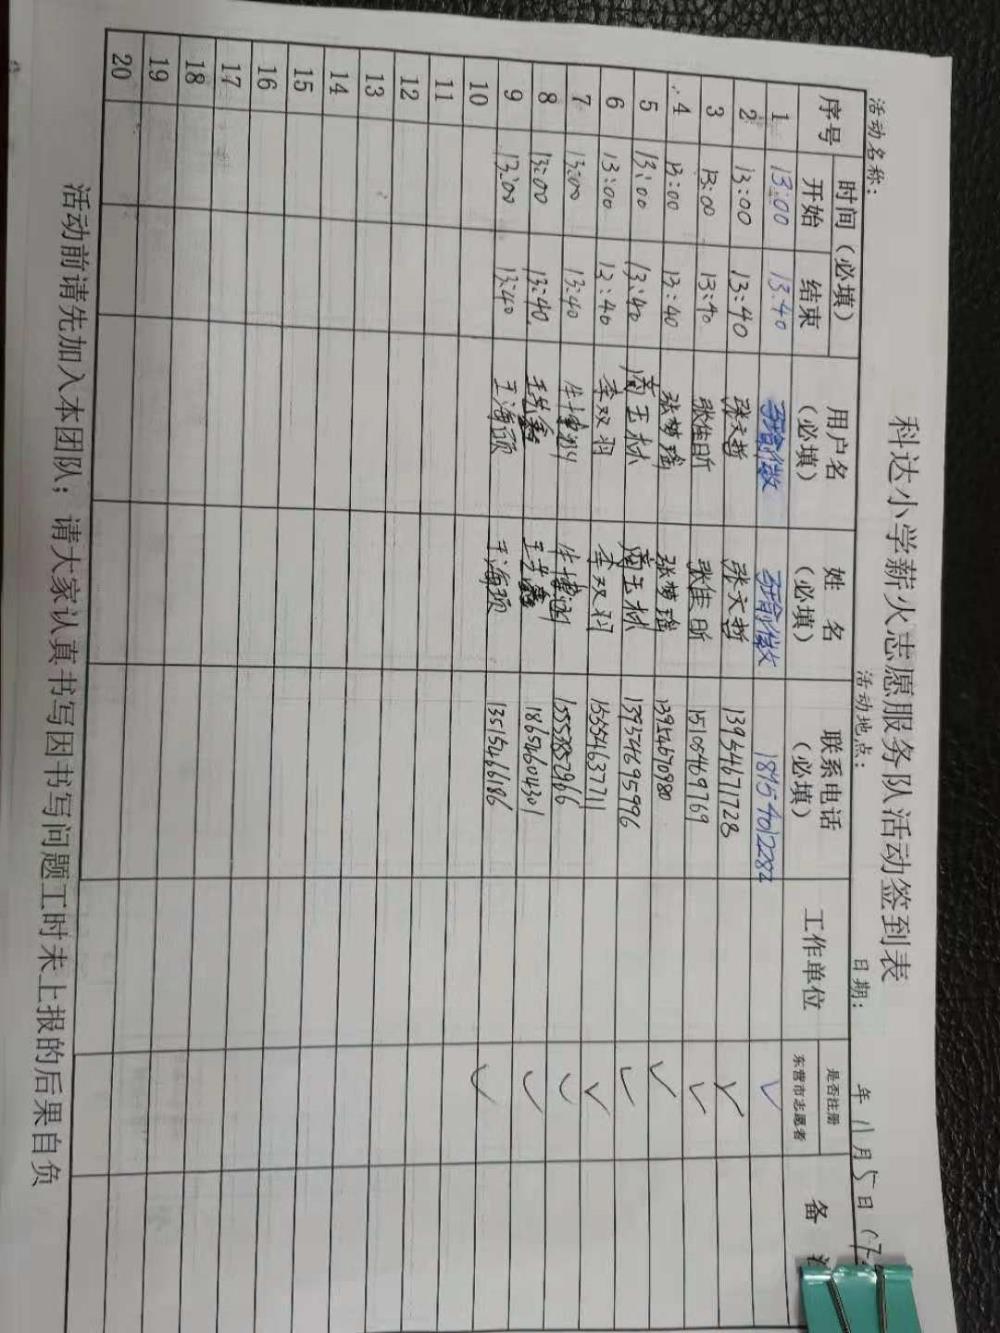 科达小学薪火志愿服务队活动签到表
活动名称： 活动地点： 日期： 年 11月5日
序号 时间（必填） 用户名（必填） 姓 名（必填） 联系电话（必填） 工作单位 是否注册东营市志愿者 备
开始 结束
1 13:00 13:40 ✓
2 13:00 13:40 张文哲 张文哲 13954671728 ✓
3 13:00 13:40 张佳昕 张佳昕 15105469769 ✓
4 13:00 13:40 张梦瑶 张梦瑶 13954670980 ✓
5 13:00 13:40 商玉林 商玉林 13954695996 ✓
6 13:00 13:40 李双羽 李双羽 15554637711 ✓
7 13:00 13:40 15553852966 ✓
8 13:00 13:40 18654604301 ✓
9 13:00 13:40 王海颐 王海颐 13515466186 ✓
10
11
12
13
14
15
16
17
18
19
20
活动前请先加入本团队；请大家认真书写因书写问题工时未上报的后果自负